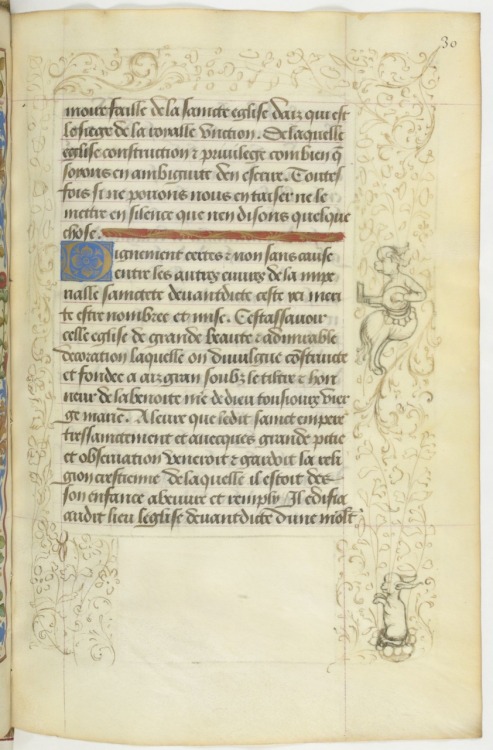 30
moire faille de la saincte eglise daiz qui est
le siege de la royalle Unction. De laquelle
eglise construction & privilege combien q̃
soyons en ambiguite den escrire. Toutes
fois si ne povons nous en taiser ne le
mettre en silence que nen disons quelque
chose.
Dignement certes & non sans cause
entre les autrez euvrez de la impe
rialle sainctete devantdicte ceste cy meri
te estre nombree et mise. Cestassavoir
celle eglise de grande beaute & admirable
decoration laquelle on divulgue cõstruicte
et fondee a aiz gran soubz le tiltre & hon
neur de la benoite mie de dieu tousiours vier
ge marie. A leure que ledit sainct empere
tressainctement et avecques grande pitie
et observation veneroit & gardoit la reli
gion crestienne de laquelle il estoit des
son enfance abeuvre et remply Il edifia
audit lieu leglise devantdicte dune molt